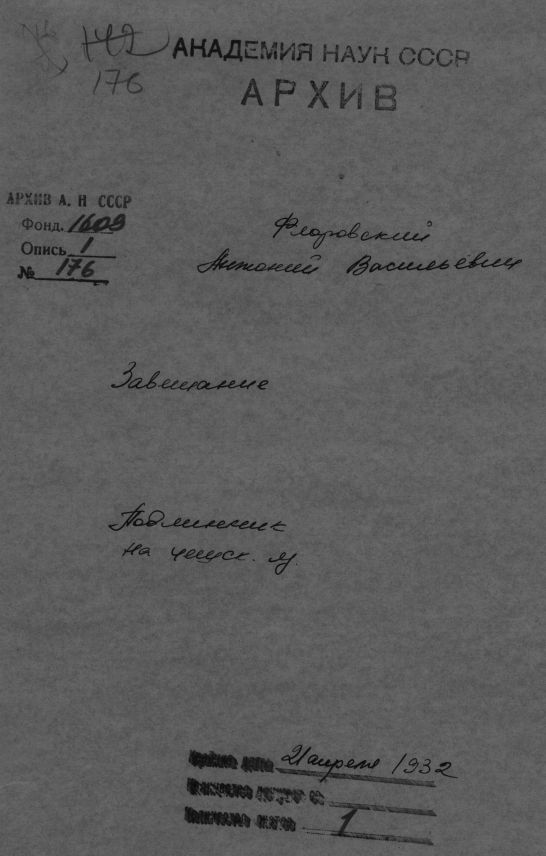 142
176
АКАДЕМИЯ НАУК СССР
АРХИВ
АРХИВ А. Н СССР
Фонд. 1609
Опись 1
№ 176
Флоровский
Антоний Васильевич
Завещание
Подлинник
на чешск. яз.
21 апреля 1932
1